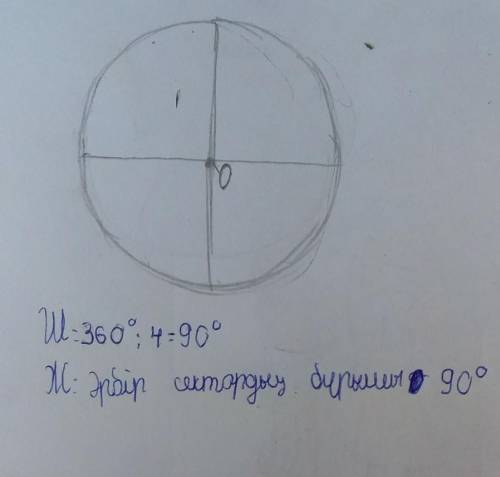 O
Ш=360°:4=90°
Ж: Әрбір сектордың бұрышы 90°